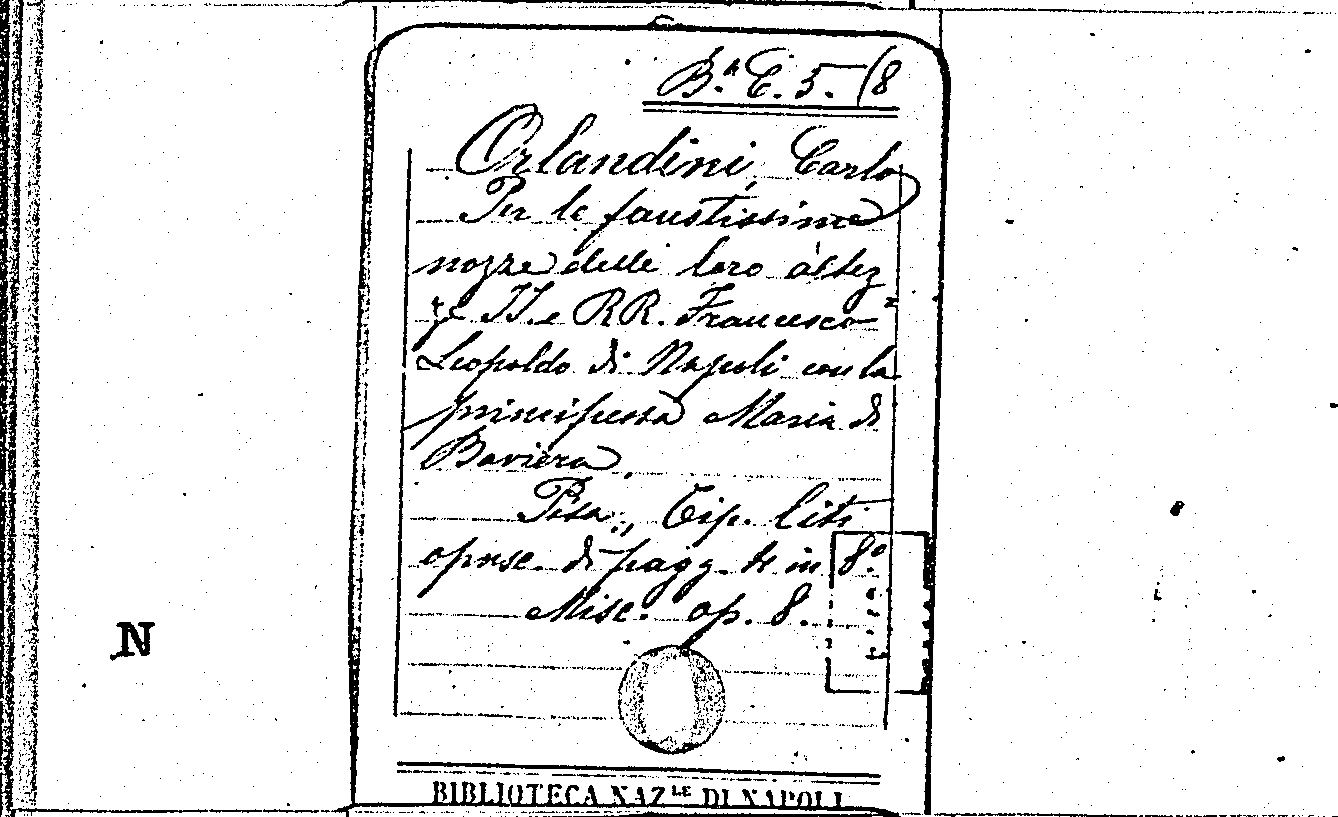 Bª. E. 5. (8
Orlandini, Carlo
Per le faustissime
nozze delle loro altez
ze II. e RR. Francesco
Leopoldo di Napoli con la
principessa Maria di
Baviera.
Pisa, Tip. Citi
opusc. di pagg. in 8.º
Misc. op. 8.
N
BIBLIOTECA NAZLE DI NAPOLI